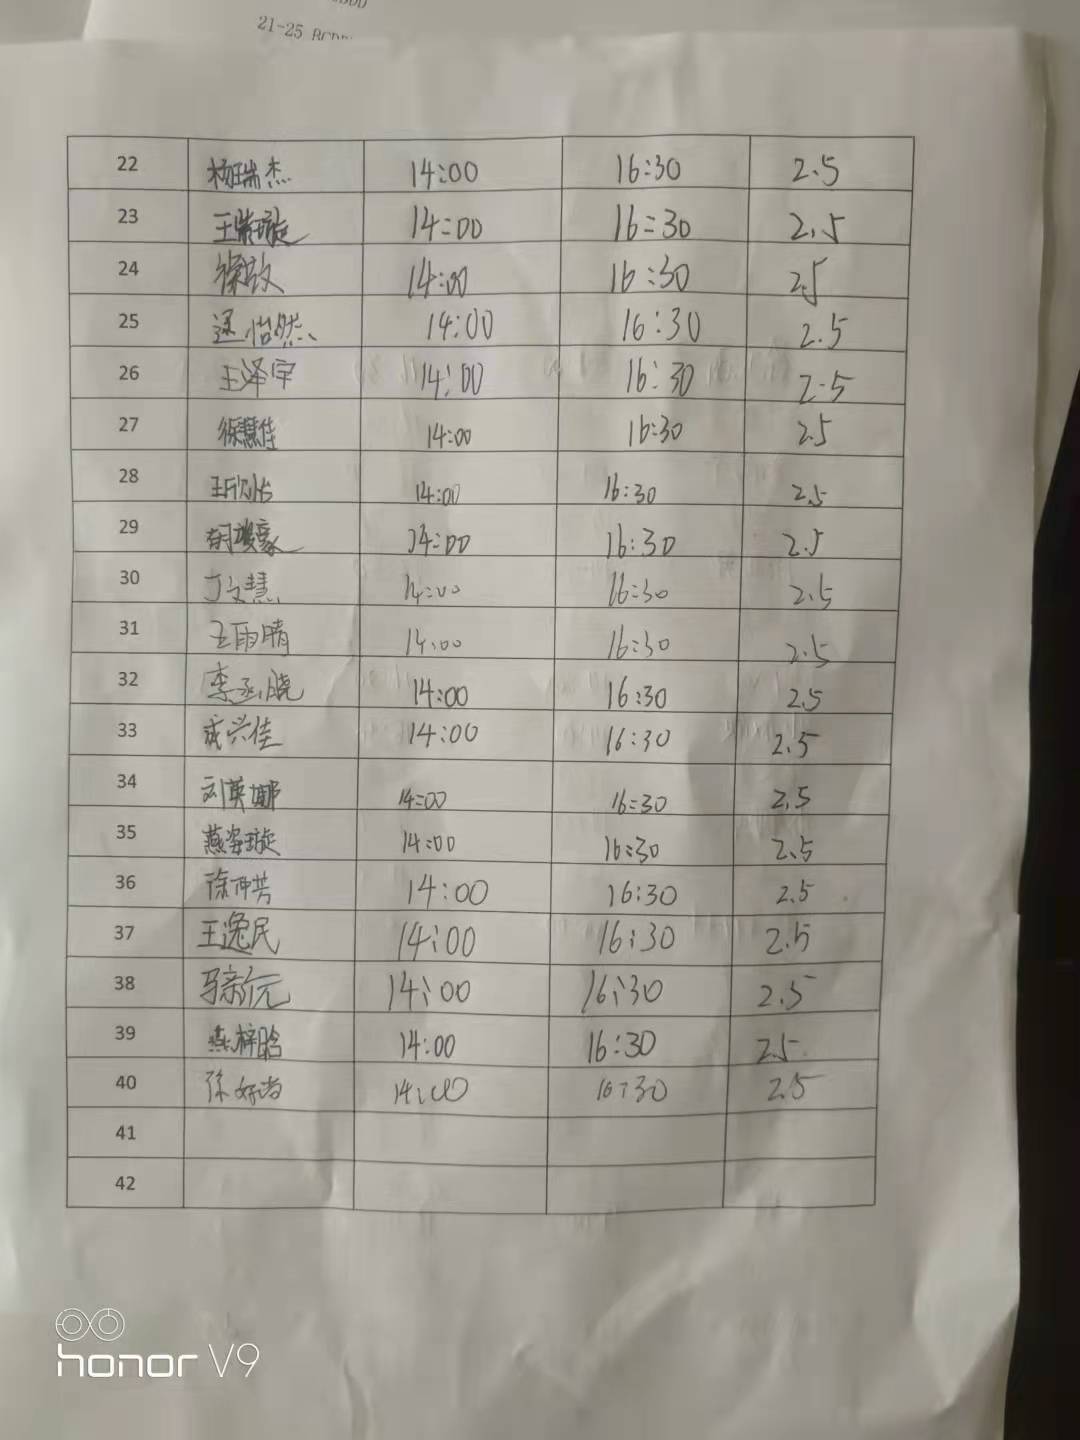 21-25 BCD
22 杨瑞杰 14:00 16:30 2.5
23 王紫璇 14:00 16:30 2.5
24 徐放 14:00 16:30 2.5
25 逯怡然 14:00 16:30 2.5
26 王泽宇 14:00 16:30 2.5
27 徐慧佳 14:00 16:30 2.5
28 王欣怡 14:00 16:30 2.5
29 14:00 16:30 2.5
30 丁文慧 14:00 16:30 2.5
31 王雨晴 14:00 16:30 2.5
32 李丞晓 14:00 16:30 2.5
33 成兴佳 14:00 16:30 2.5
34 刘英娜 14:00 16:30 2.5
35 燕姿璇 14:00 16:30 2.5
36 14:00 16:30 2.5
37 王逸民 14:00 16:30 2.5
38 马新元 14:00 16:30 2.5
39 燕梓晗 14:00 16:30 2.5
40 14:00 16:30 2.5
41
42
honor V9